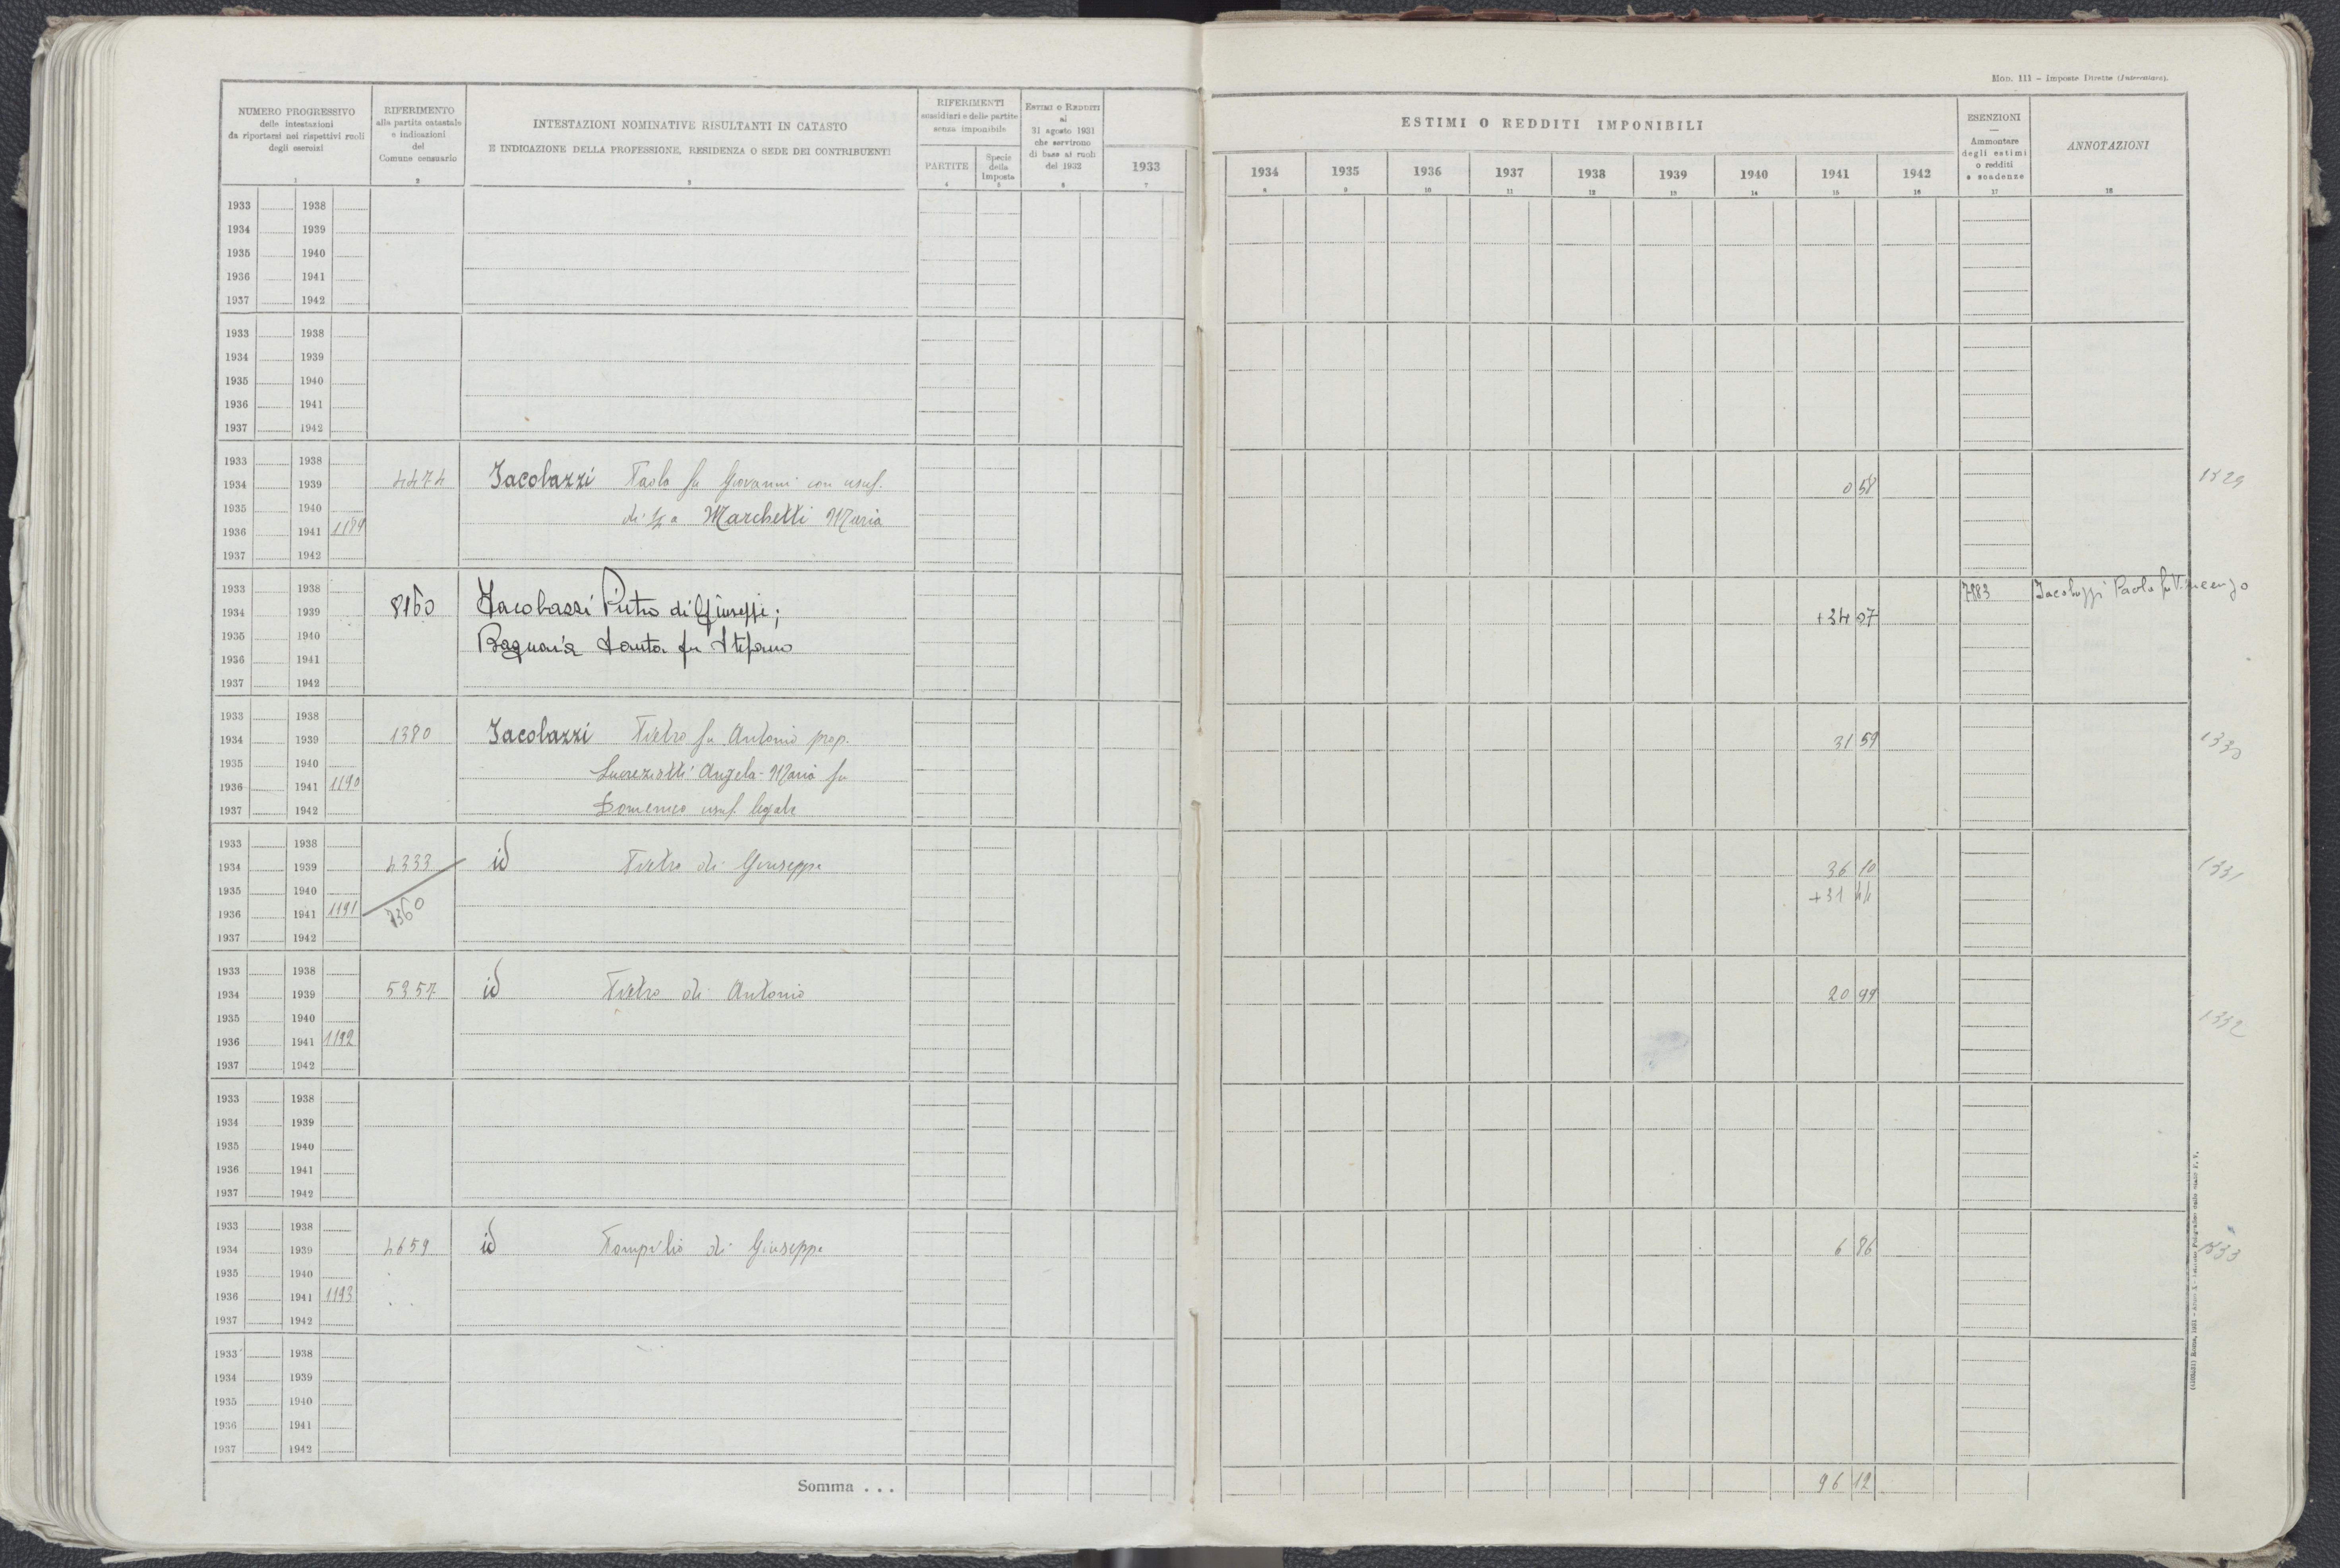 Mod. 111 – Imposte Dirette (Intercalare).
NUMERO PROGRESSIVO
delle intestazioni
da riportarsi nei rispettivi ruoli
degli esercizi
1
RIFERIMENTO
alla partita catastale
e indicazioni
del
Comune censuario
2
INTESTAZIONI NOMINATIVE RISULTANTI IN CATASTO
E INDICAZIONE DELLA PROFESSIONE, RESIDENZA O SEDE DEI CONTRIBUENTI
3
RIFERIMENTI
sussidiari e delle partite
senza imponibile
PARTITE
4
Specie
della
Imposta
5
ESTIMI O REDDITI
al
31 agosto 1931
che servirono
di base ai ruoli
del 1932
6
1933
7
ESTIMI O REDDITI IMPONIBILI
1934 1935 1936 1937 1938 1939 1940 1941 1942
8 9 10 11 12 13 14 15 16
ESENZIONI
—
Ammontare
degli estimi
o redditi
e scadenze
17
ANNOTAZIONI
18
1933 1938
1934 1939
1935 1940
1936 1941
1937 1942
1933 1938
1934 1939
1935 1940
1936 1941
1937 1942
1933 1938
1934 1939 4474 Jacobazzi Paolo fu Giovanni con usuf. 0 58 1329
1935 1940 Marchetti Maria
1936 1941 1189
1937 1942
1933 1938 7883 Jacobazzi Paolo fu Vincenzo
1934 1939 8160 Jacobazzi Pietro di Giuseppe; +34 07
1935 1940 Santa fu Stefano
1936 1941
1937 1942
1933 1938
1934 1939 1380 Jacobazzi Pietro fu Antonio prop. 31 59 1330
1935 1940 Lucreziotti Angela-Maria fu
1936 1941 1190
1937 1942 Domenico usuf. legale
1933 1938
1934 1939 4333 id Pietro di Giuseppe 36 10 1331
1935 1940 +31 44
1936 1941 1191 7360
1937 1942
1933 1938
1934 1939 5357 id Pietro di Antonio 20 99
1935 1940 1332
1936 1941 1192
1937 1942
1933 1938
1934 1939
1935 1940
1936 1941
1937 1942
1933 1938
1934 1939 4659 id Pompilio di Giuseppe 6 86 1333
1935 1940
1936 1941 1193
1937 1942
1933 1938
1934 1939
1935 1940
1936 1941
1937 1942
Somma . . . 96 12